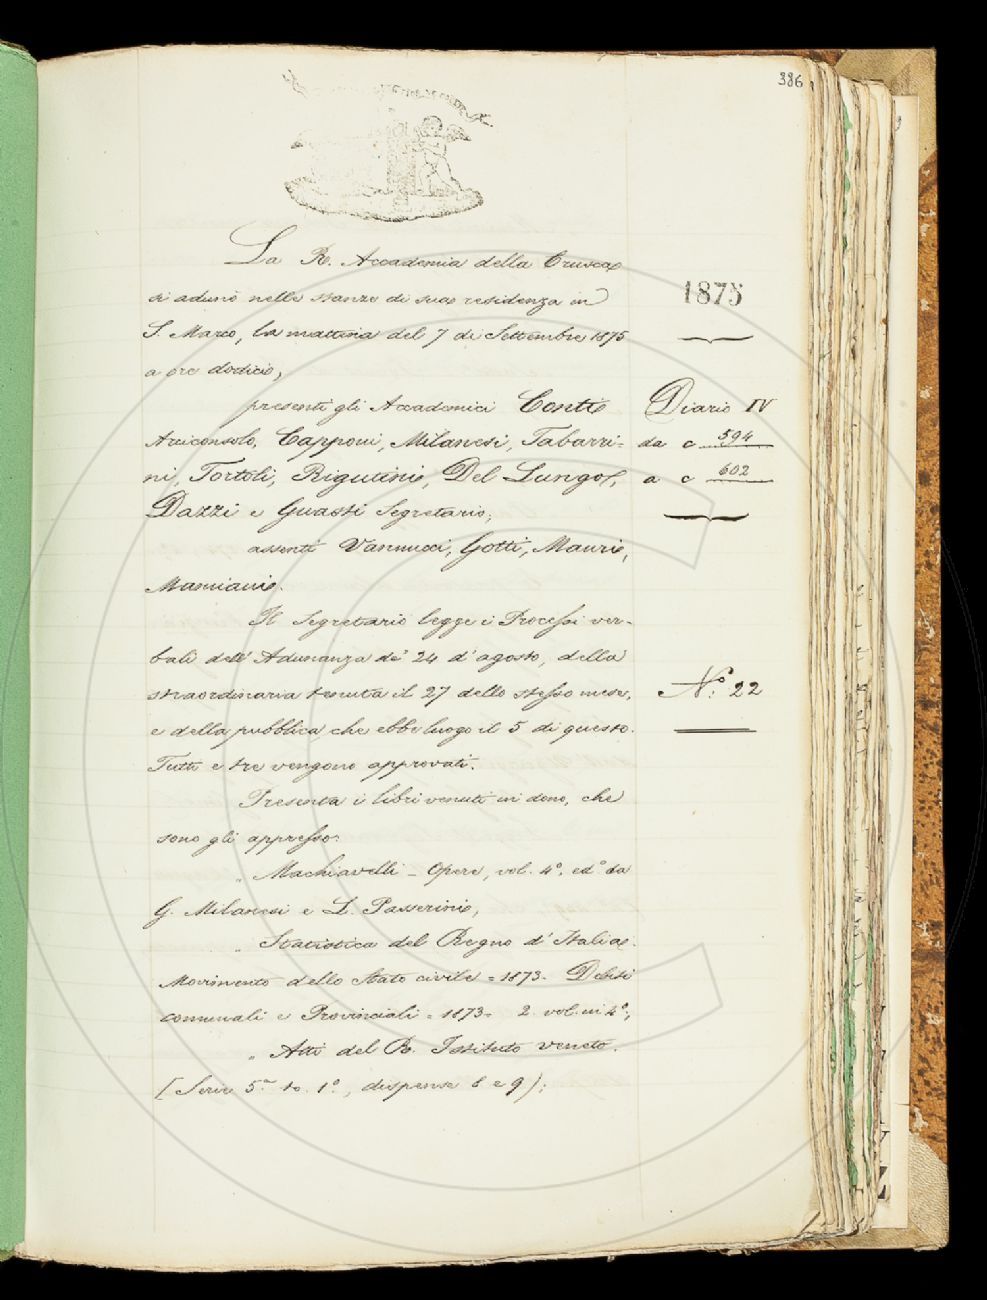 386
La R. Accademia della Crusca
si adunò nelle stanze di sua residenza in
S. Marco, la mattina del 7 di Settembre 1875
a ore dodici,
1875
presenti gli Accademici Conti
Arciconsolo, Capponi, Milanesi, Tabarri-
ni, Tortoli, Rigutini, Del Lungo,
Dazzi e Guasti Segretario;
Diario IV
da c 594
a c 602
assenti Vannucci, Gotti, Mauri,
Mamiani.
Il Segretario legge i Processi ver-
bali dell'Adunanza de' 24 d'agosto, della
straordinaria tenuta il 27 dello stesso mese,
e della pubblica che ebbe luogo il 5 di questo.
Tutti e tre vengono approvati.
N.° 22
Presenta i libri venuti in dono, che
sono gli appresso:
„ Machiavelli - Opere, vol. 4°, ed.° da
G. Milanesi e L. Passerini,
„ Statistica del Regno d'Italia.
Movimento dello Stato civile = 1873. Debiti
comunali e Provinciali = 1873= 2 vol. in 4°,
„ Atti del R. Istituto veneto.
(Serie 5.ª to. 1°, dispense 8 e 9);